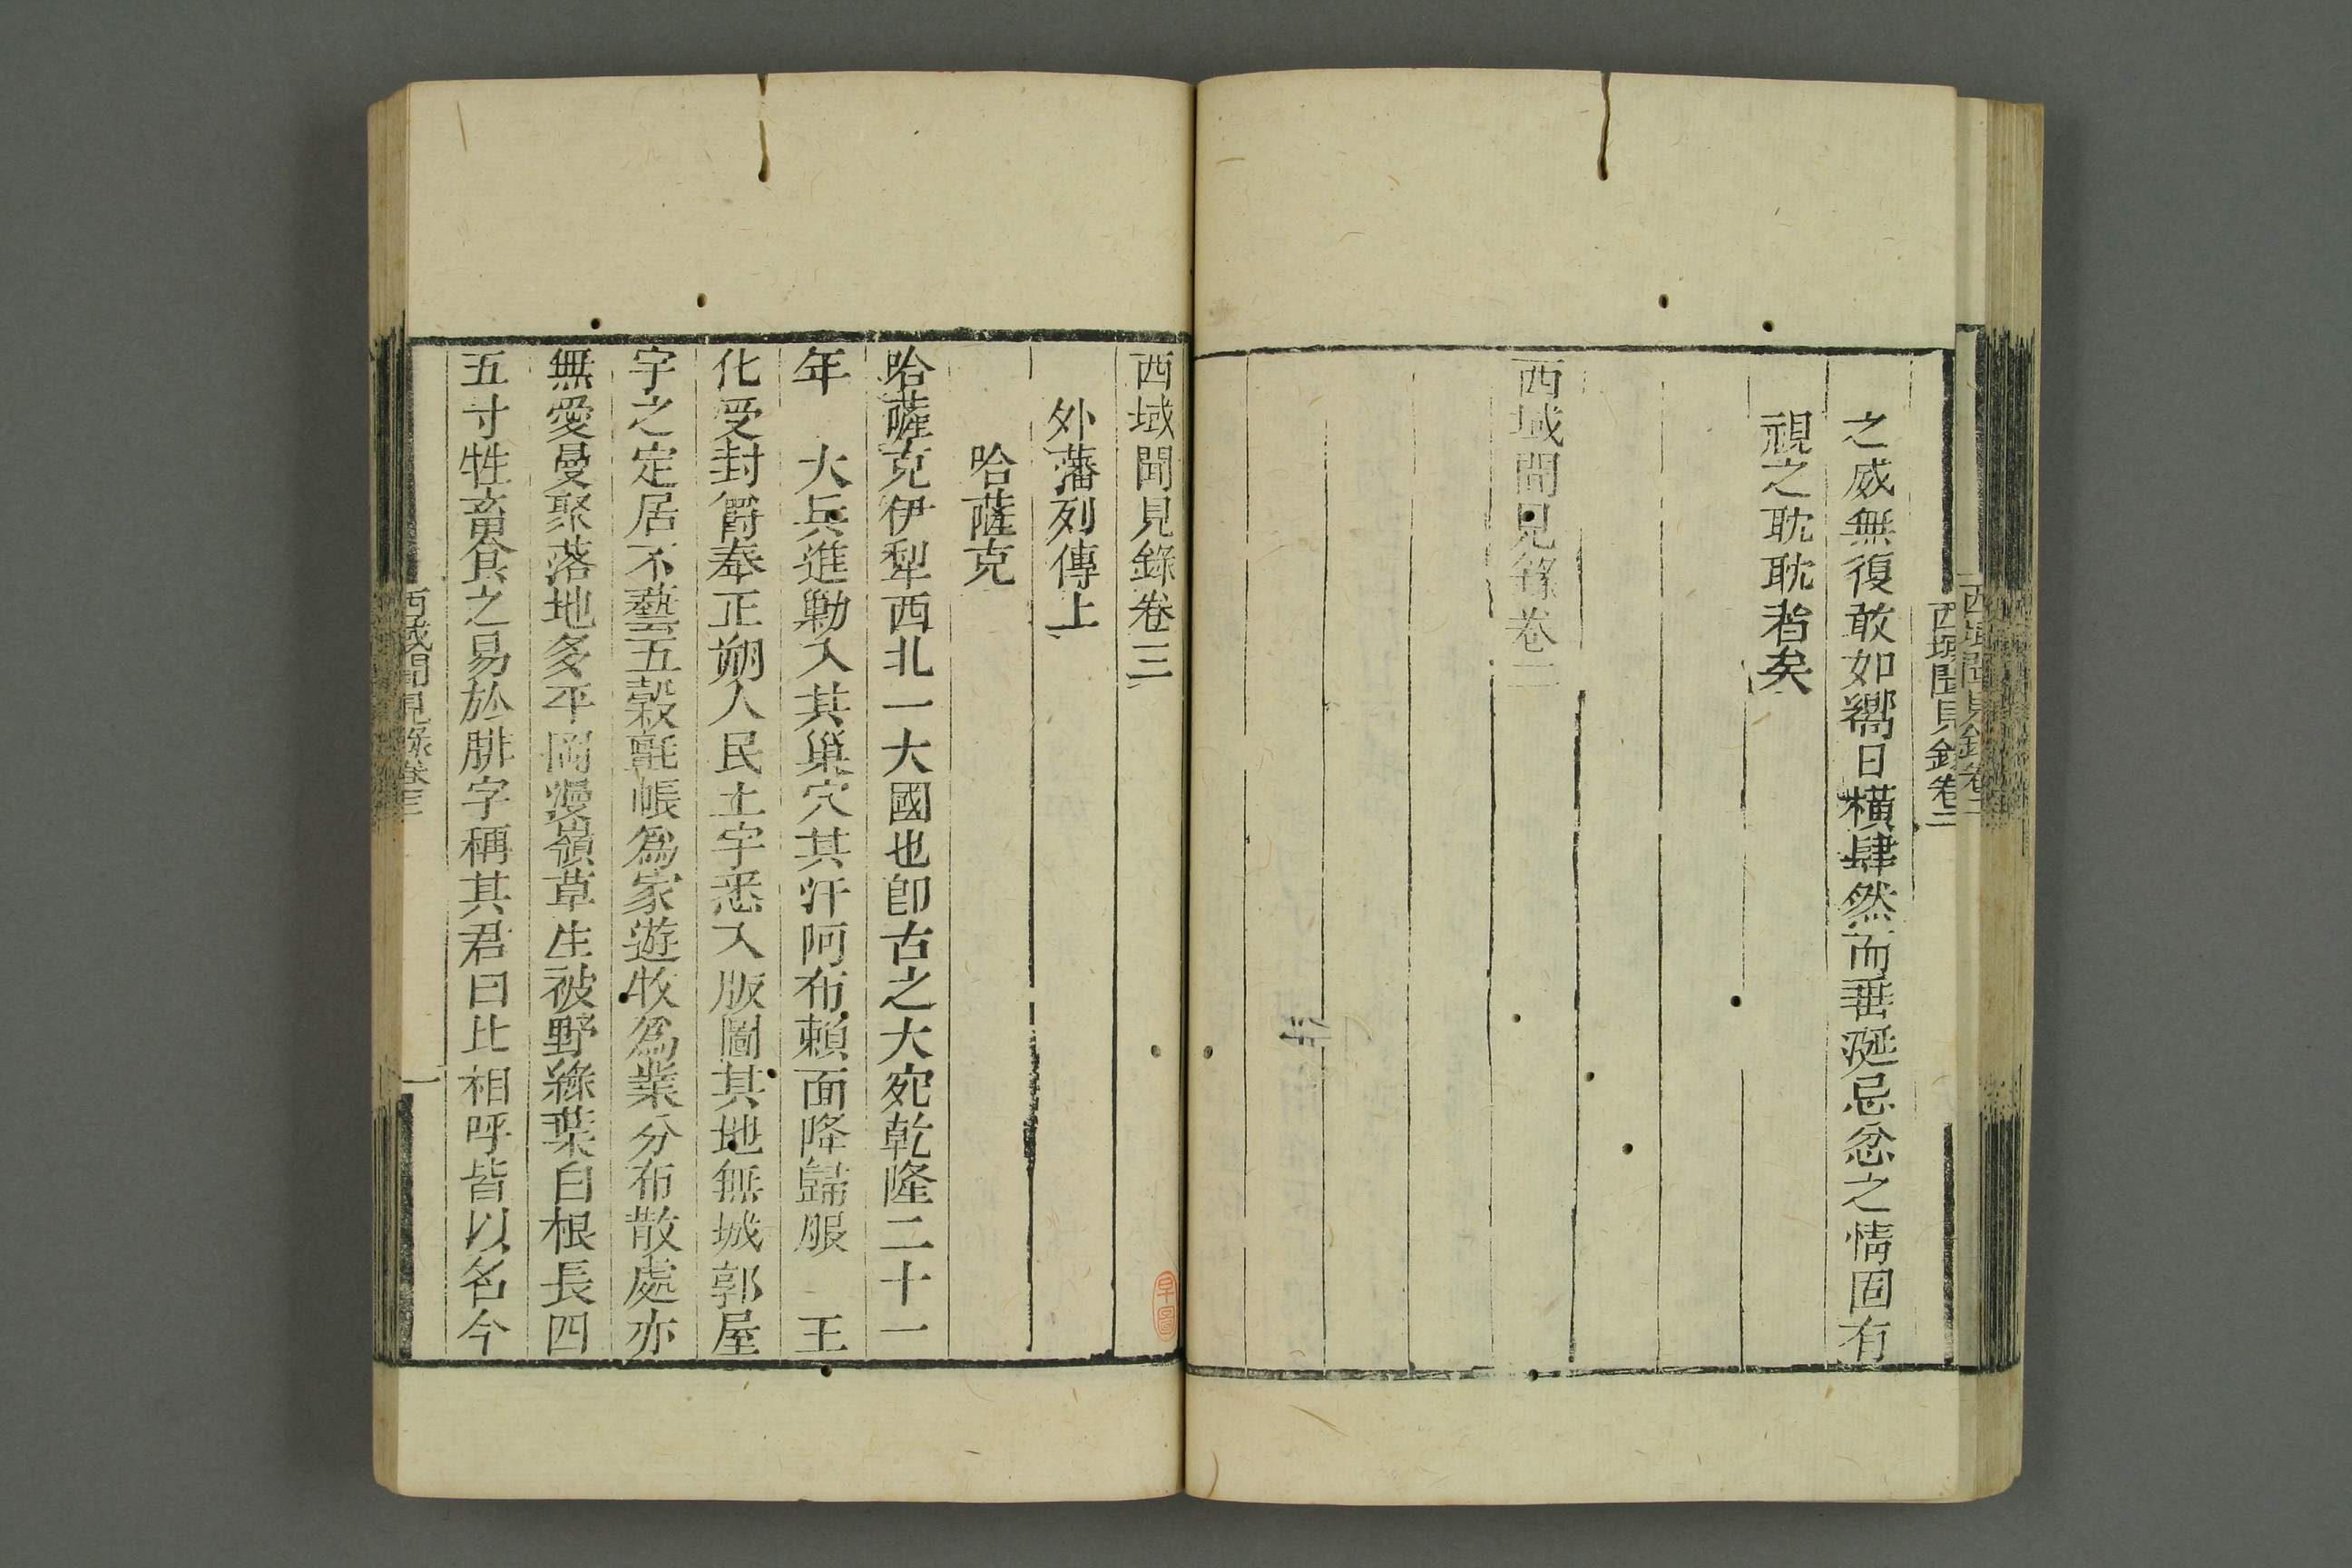 之威無復敢如嚮日橫肆然而垂涎忌忿之情固有
視之耽耽者矣
西域聞見錄卷二
西域聞見錄卷三
外藩列傳上
哈薩克
哈薩克伊犁西北一大國也卽古之大宛乾隆二十一
年　大兵進勦入其巢穴其汗阿布賴面降歸服　王
化受封爵奉正朔人民土宇悉入版圖其地無城郭屋
宇之定居不藝五穀氈帳爲家遊牧爲業分布散處亦
無愛曼聚落地多平岡漫嶺草生被野綠葉白根長四
五寸牲畜食之易於腓字稱其君曰比相呼皆以名今
西域聞見錄卷三
一